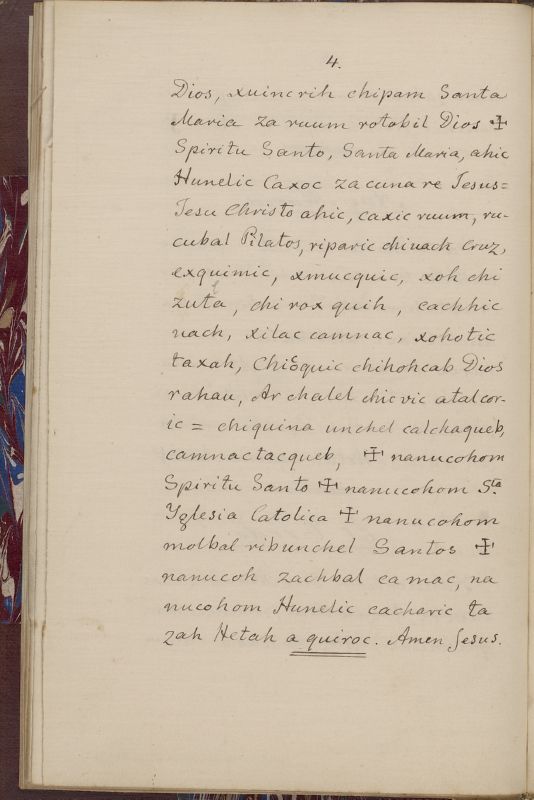 4.
Dios, xuincrih chipam Santa
Maria za ruum rotobil Dios ✠
Spiritu Santo, Santa Maria, ahic
Hunelic Caxoc za cuna re Jesus=
Jesu Christo ahic, caxic ruum, ru-
cubal Pilatos, riparic chiuach Cruz,
exquimic, xmucquic, xoh chi
zuta, chi rox quih, cachhic
uach, xilac camnac, xohotic
taxah, Chiɛquic chihohcab Dios
rahau, Ar chalel chic vic atalcor-
ic = chiquina unchel calchaqueb,
camnactacqueb, ✠ nanucohom
Spiritu Santo ✠ nanucohom Sta.
Yglesia Catolica ✠ nanucohom
molbal ribunchel Santos ✠
nanucoh zachbal ca mac, na
nucohom Hunelic cacharic ta
zah Hetah a quiroc. Amen Jesus.